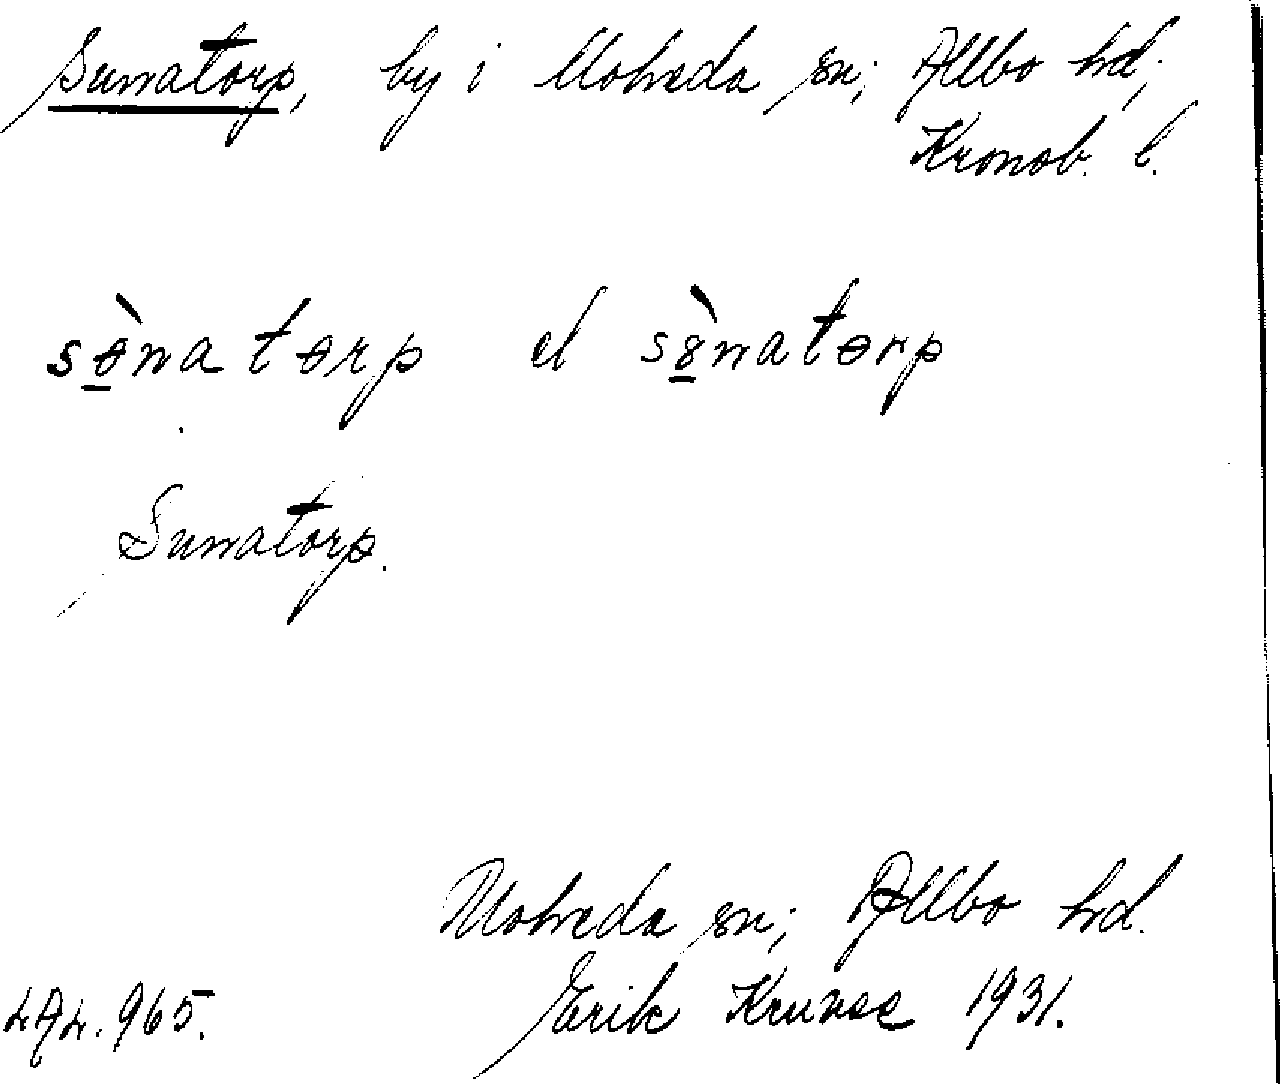 Sunnatorp, by i Moheda sn; Allbo hd,
Kronob. l.
sɵ̀natɵrp el sȣ̀natɵrp
Sunnatorp.
Moheda sn; Allbo hd.
LAL. 965. Erik Kruuse 1931.